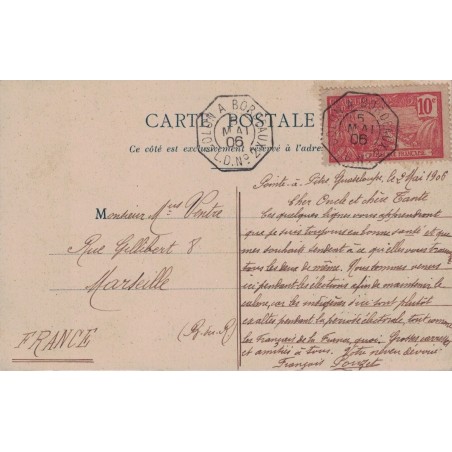 COLON A BORDEAUX
5
MAI
06
L.D. Nº 2
10c
5
MAI
06
CARTE POSTALE
Ce côté est exclusivement réservé à l'adresse
Pointe-à-Pitre Guadeloupe, le 2 Mai 1906
Cher Oncle et chère Tante
Ces quelques lignes vous apprendront
que je suis toujours en bonne santé et que
mes souhaits tendent à ce qu'elles vous
tous les deux de même. Nous sommes venus
ici pendant les élections afin de maintenir le
calme, car les indigènes d'ici sont plutôt
exaltés pendant la période électorale, tout comme
les Français de la France, quoi. Grosses caresses
et amitiés à tous. Votre neveu dévoué
François Pouget
Monsieur Ventre
Rue Gillibert 8
Marseille
(B. du R)
FRANCE